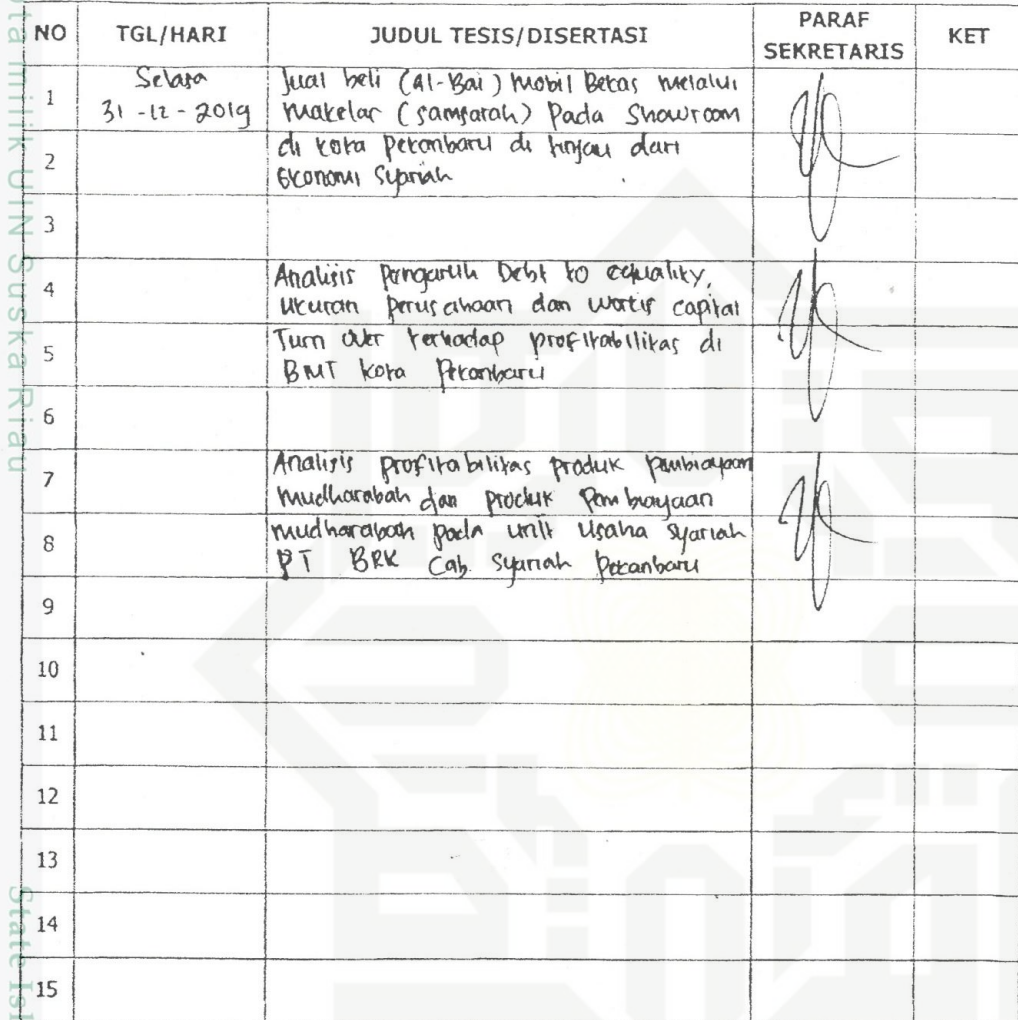 NO TGL/HARI JUDUL TESIS/DISERTASI PARAF SEKRETARIS KET
1 Selasa Jual beli (Al-Bai) Mobil Bekas melalui
31-12-2019 Makelar (samsarah) Pada Showroom
2 di kota pekanbaru di tinjau dari
Ekonomi Syariah
3
4 Analisis pengaruh Debt to equality,
Ukuran perusahaan dan capital
5 Turn Over terhadap profitabilitas di
BMT kota Pekanbaru
6
7 Analisis profitabilitas produk pembiayaan
mudharabah dan produk Pembiayaan
8 mudharabah pada unit Usaha syariah
PT BRK Cab. Syariah Pekanbaru
9
10
11
12
13
14
15
ota milik UIN Suska Riau
State Isl